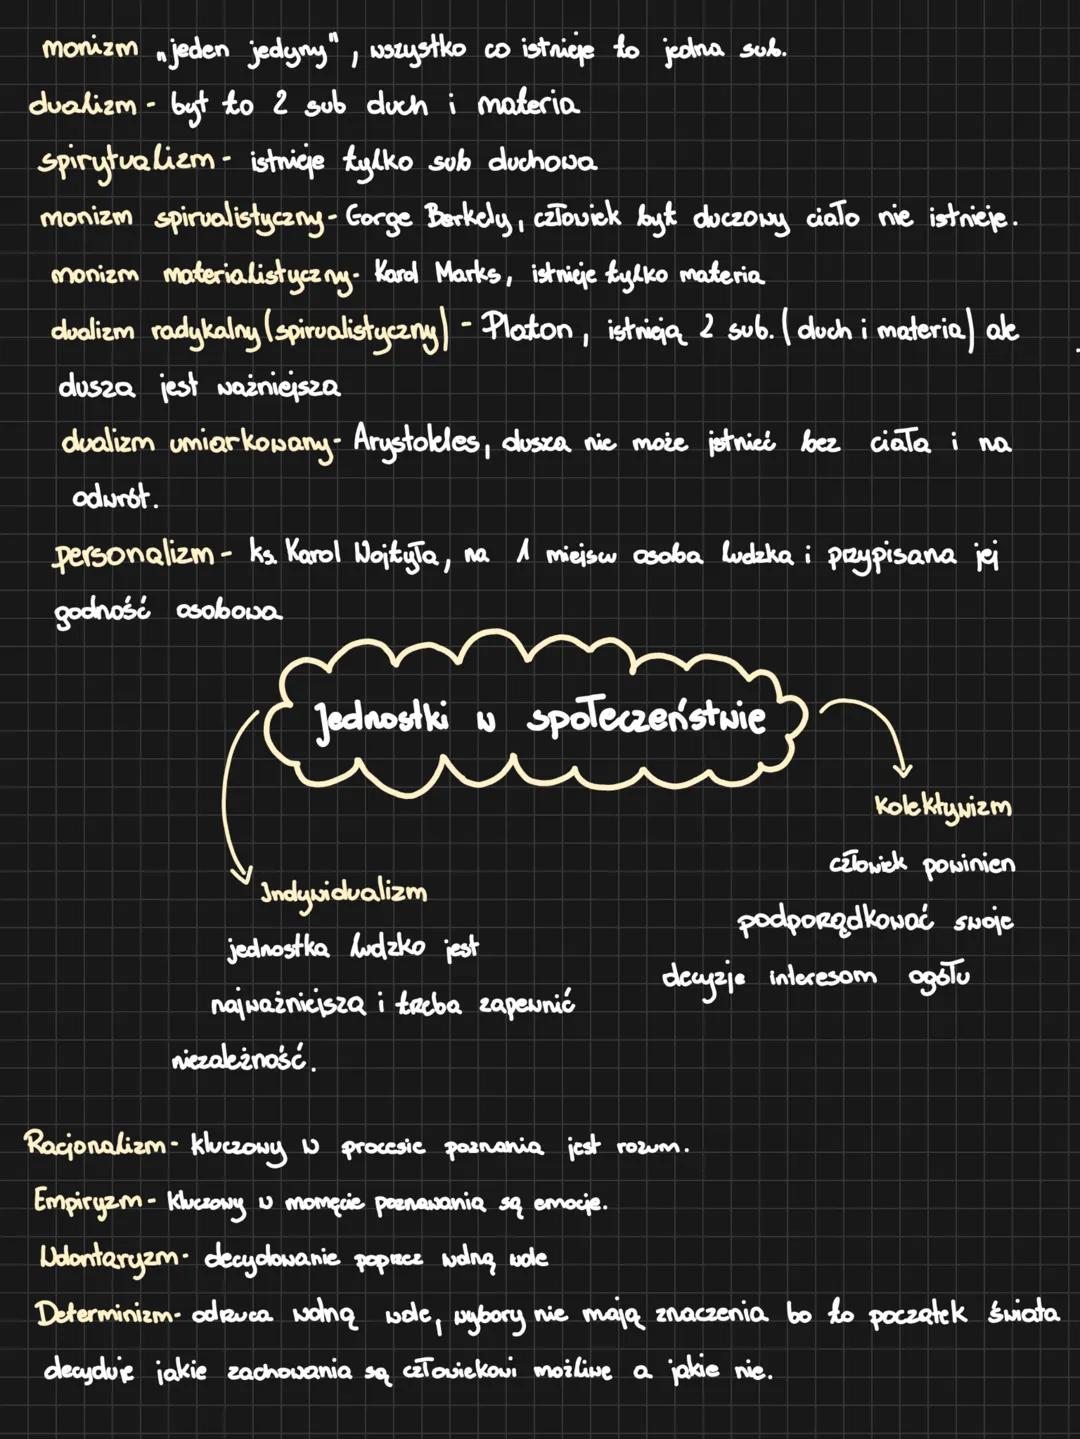 monizm „jeden jedyny", wszystko co istnieje to jedna sub.
dualizm - byt to 2 sub duch i materia
spirytualizm - istnieje tylko sub duchowa
monizm spirualistyczny - Gorge Berkely, człowiek byt duczowy ciało nie istnieje.
monizm materialistyczny - Karol Marks, istnieje tylko materia
dualizm radykalny (spirualistyczny) - Platon, istnieją 2 sub. (duch i materia) ale
dusza jest ważniejsza
dualizm umiarkowany - Arystokles, dusza nie może istnieć bez ciała i na
odwrót.
personalizm - ks. Karol Wojtyła, na 1 miejscu osoba ludzka i przypisana jej
godność osobowa
Jednostki w społeczeństwie
Kolektywizm
człowiek powinien
podporządkować swoje
decyzje interesom ogółu
Indywidualizm
jednostka ludzko jest
najważniejsza i trzeba zapewnić
niezależność.
Racjonalizm - kluczowy w procesie poznania jest rozum.
Empiryzm - kluczowy w momęcie poznawania są emocje.
Wolontaryzm - decydowanie poprzez wolną wole
Determinizm - odrzuca wolną wole, wybory nie mają znaczenia bo to początek świata
decyduje jakie zachowania są człowiekowi możliwe a jakie nie.